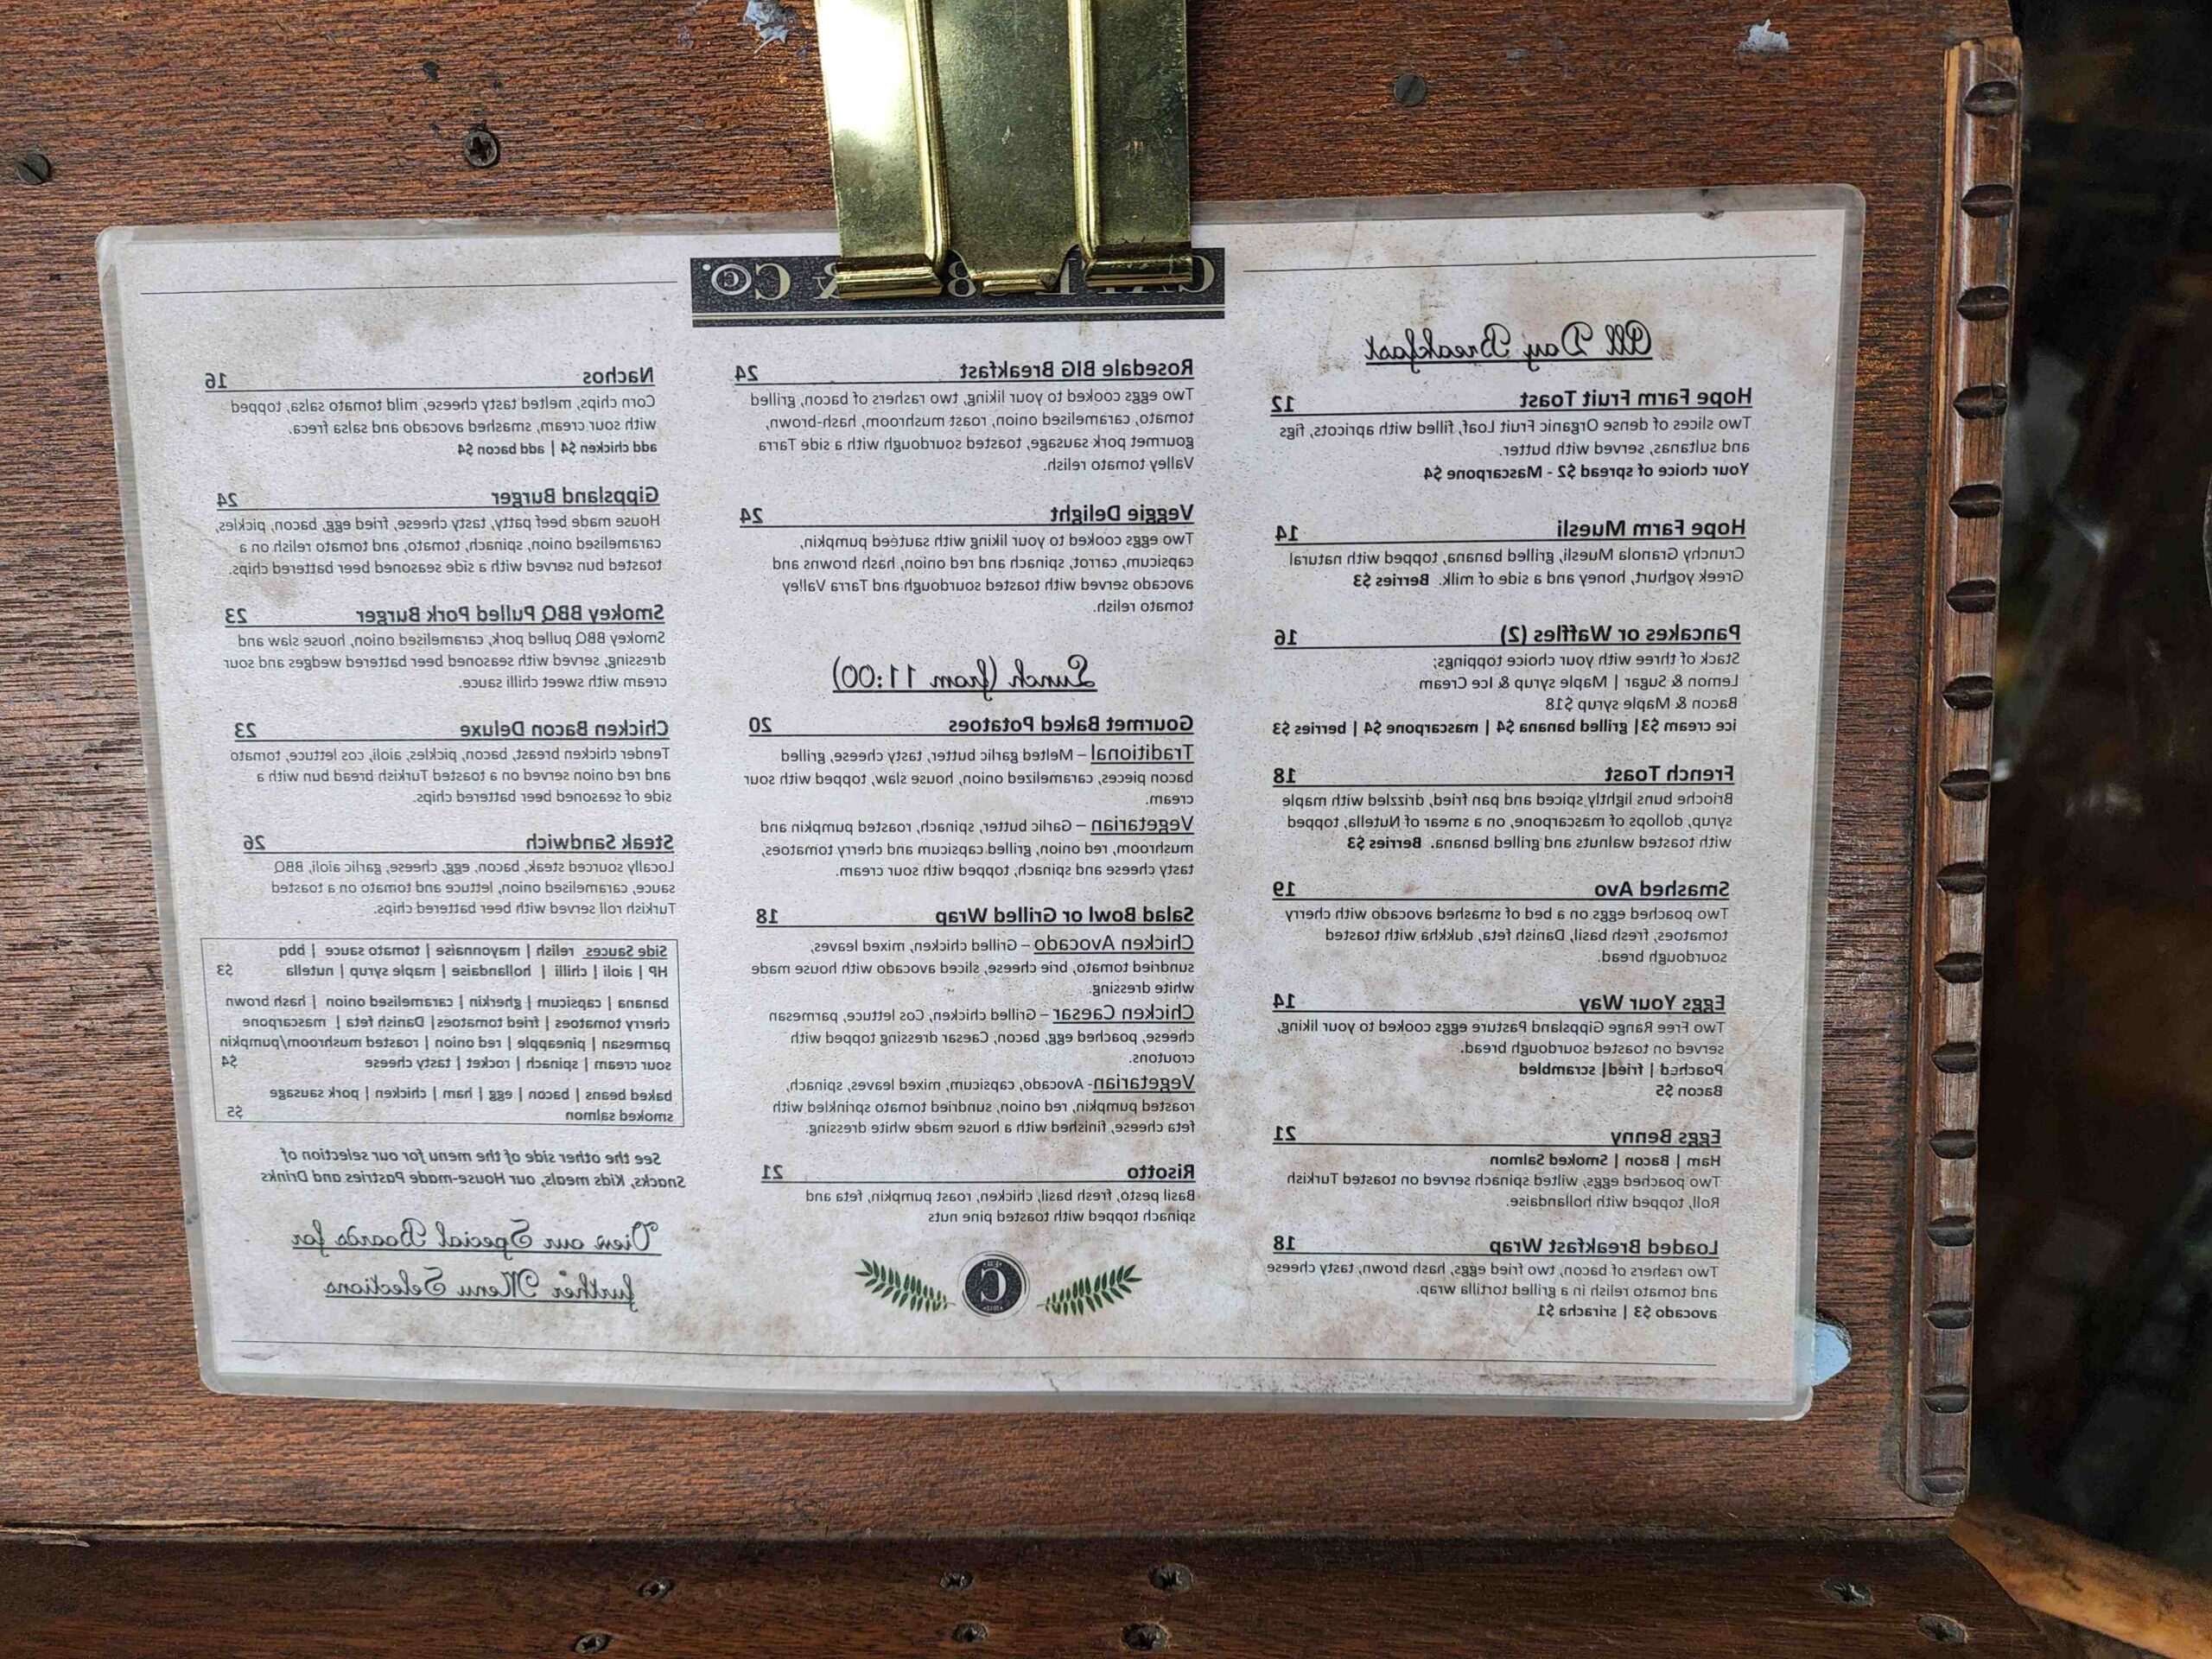 & CO.
All Day Breakfast
Hope Farm Fruit Toast 12
Two slices of dense Organic Fruit Loaf, filled with apricots, figs
and sultanas, served with butter.
Your choice of spread $2 - Mascarpone $4
Hope Farm Muesli 14
Crunchy Granola Muesli, grilled banana, topped with natural
Greek yoghurt, honey and a side of milk. Berries $3
Pancakes or Waffles (2) 16
Stack of three with your choice toppings;
Lemon & Sugar | Maple syrup & Ice Cream
Bacon & Maple syrup $18
ice cream $3| grilled banana $4 | mascarpone $4 | berries $3
French Toast 18
Brioche buns lightly spiced and pan fried, drizzled with maple
syrup, dollops of mascarpone, on a smear of Nutella, topped
with toasted walnuts and grilled banana. Berries $3
Smashed Avo 19
Two poached eggs on a bed of smashed avocado with cherry
tomatoes, fresh basil, Danish feta, dukkha with toasted
sourdough bread.
Eggs Your Way 14
Two Free Range Gippsland Pasture eggs cooked to your liking,
served on toasted sourdough bread.
Poached | fried| scrambled
Bacon $5
Eggs Benny 21
Ham | Bacon | Smoked Salmon
Two poached eggs, wilted spinach served on toasted Turkish
Roll, topped with hollandaise.
Loaded Breakfast Wrap 18
Two rashers of bacon, two fried eggs, hash brown, tasty cheese
and tomato relish in a grilled tortilla wrap.
avocado $3 | sriracha $1
Rosedale BIG Breakfast 24
Two eggs cooked to your liking, two rashers of bacon, grilled
tomato, caramelised onion, roast mushroom, hash-brown,
gourmet pork sausage, toasted sourdough with a side Tarra
Valley tomato relish.
Veggie Delight 24
Two eggs cooked to your liking with sautéed pumpkin,
capsicum, carrot, spinach and red onion, hash browns and
avocado served with toasted sourdough and Tarra Valley
tomato relish.
Lunch (from 11:00)
Gourmet Baked Potatoes 20
Traditional – Melted garlic butter, tasty cheese, grilled
bacon pieces, caramelized onion, house slaw, topped with sour
cream.
Vegetarian – Garlic butter, spinach, roasted pumpkin and
mushroom, red onion, grilled capsicum and cherry tomatoes,
tasty cheese and spinach, topped with sour cream.
Salad Bowl or Grilled Wrap 18
Chicken Avocado – Grilled chicken, mixed leaves,
sundried tomato, brie cheese, sliced avocado with house made
white dressing.
Chicken Caesar – Grilled chicken, Cos lettuce, parmesan
cheese, poached egg, bacon, Caesar dressing topped with
croutons.
Vegetarian- Avocado, capsicum, mixed leaves, spinach,
roasted pumpkin, red onion, sundried tomato sprinkled with
feta cheese, finished with a house made white dressing.
Risotto 21
Basil pesto, fresh basil, chicken, roast pumpkin, feta and
spinach topped with toasted pine nuts
C
Nachos 16
Corn chips, melted tasty cheese, mild tomato salsa, topped
with sour cream, smashed avocado and salsa freca.
add chicken $4 | add bacon $4
Gippsland Burger 24
House made beef patty, tasty cheese, fried egg, bacon, pickles,
caramelised onion, spinach, tomato, and tomato relish on a
toasted bun served with a side seasoned beer battered chips.
Smokey BBQ Pulled Pork Burger 23
Smokey BBQ pulled pork, caramelised onion, house slaw and
dressing, served with seasoned beer battered wedges and sour
cream with sweet chilli sauce.
Chicken Bacon Deluxe 23
Tender chicken breast, bacon, pickles, aioli, cos lettuce, tomato
and red onion served on a toasted Turkish bread bun with a
side of seasoned beer battered chips.
Steak Sandwich 26
Locally sourced steak, bacon, egg, cheese, garlic aioli, BBQ
sauce, caramelised onion, lettuce and tomato on a toasted
Turkish roll served with beer battered chips.
Side Sauces relish | mayonnaise | tomato sauce | bbq
HP | aioli | chilli | hollandaise | maple syrup | nutella $3
banana | capsicum | gherkin | caramelised onion | hash brown
cherry tomatoes | fried tomatoes| Danish feta | mascarpone
parmesan | pineapple | red onion | roasted mushroom/pumpkin
sour cream | spinach | rocket | tasty cheese $4
baked beans | bacon | egg | ham | chicken | pork sausage
smoked salmon $5
See the other side of the menu for our selection of
Snacks, Kids meals, our House-made Pastries and Drinks
View our Special Boards for
further Menu Selections